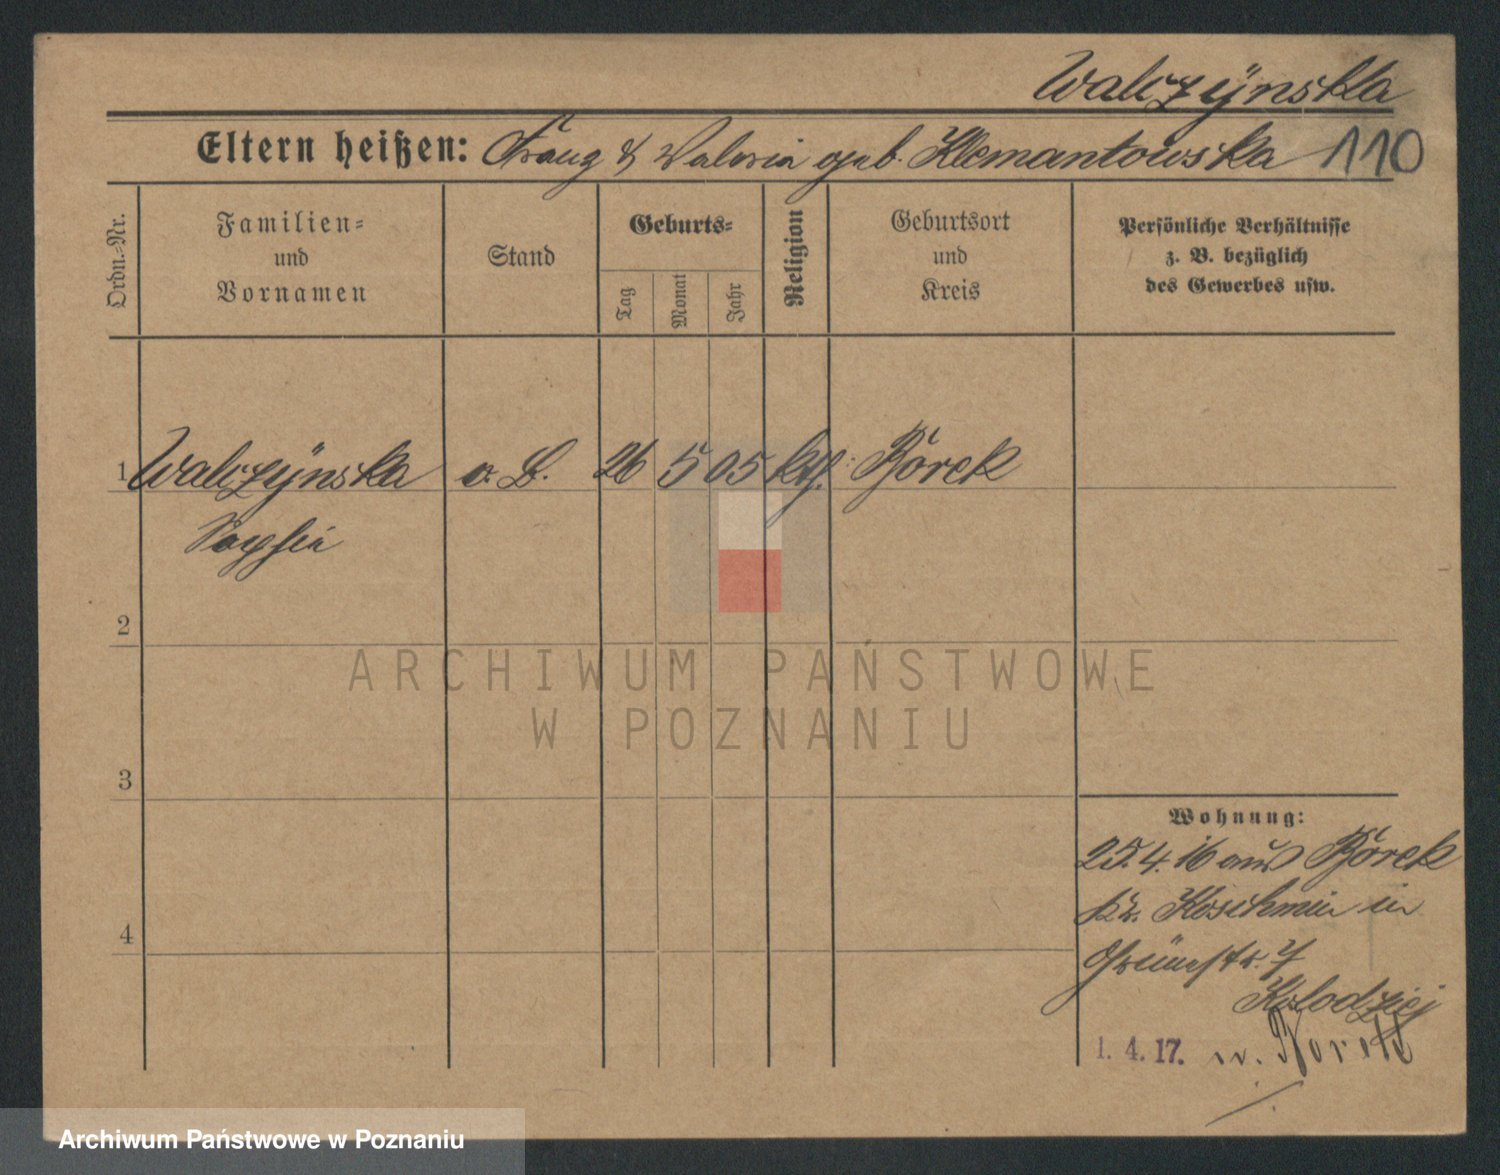 Walczÿnska
Eltern heißen: Franz & Valeria geb. Klemantowska 110
Ordn.-Nr.
Familien-
und
Vornamen
Stand
Geburts-
Tag
Monat
Jahr
Religion
Geburtsort
und
Kreis
Persönliche Verhältnisse
z. B. bezüglich
des Gewerbes usw.
1 Walczÿnska o. B. 26 5 05 kth. Borek
Sophia
2
3
4
Wohnung:
25. 4. 16 aus Borek
Kr. Koschmin in
Grünestr. 7
Kolodziej
1. 4. 17. n. Borek
ARCHIWUM PAŃSTWOWE
W POZNANIU
Archiwum Państwowe w Poznaniu